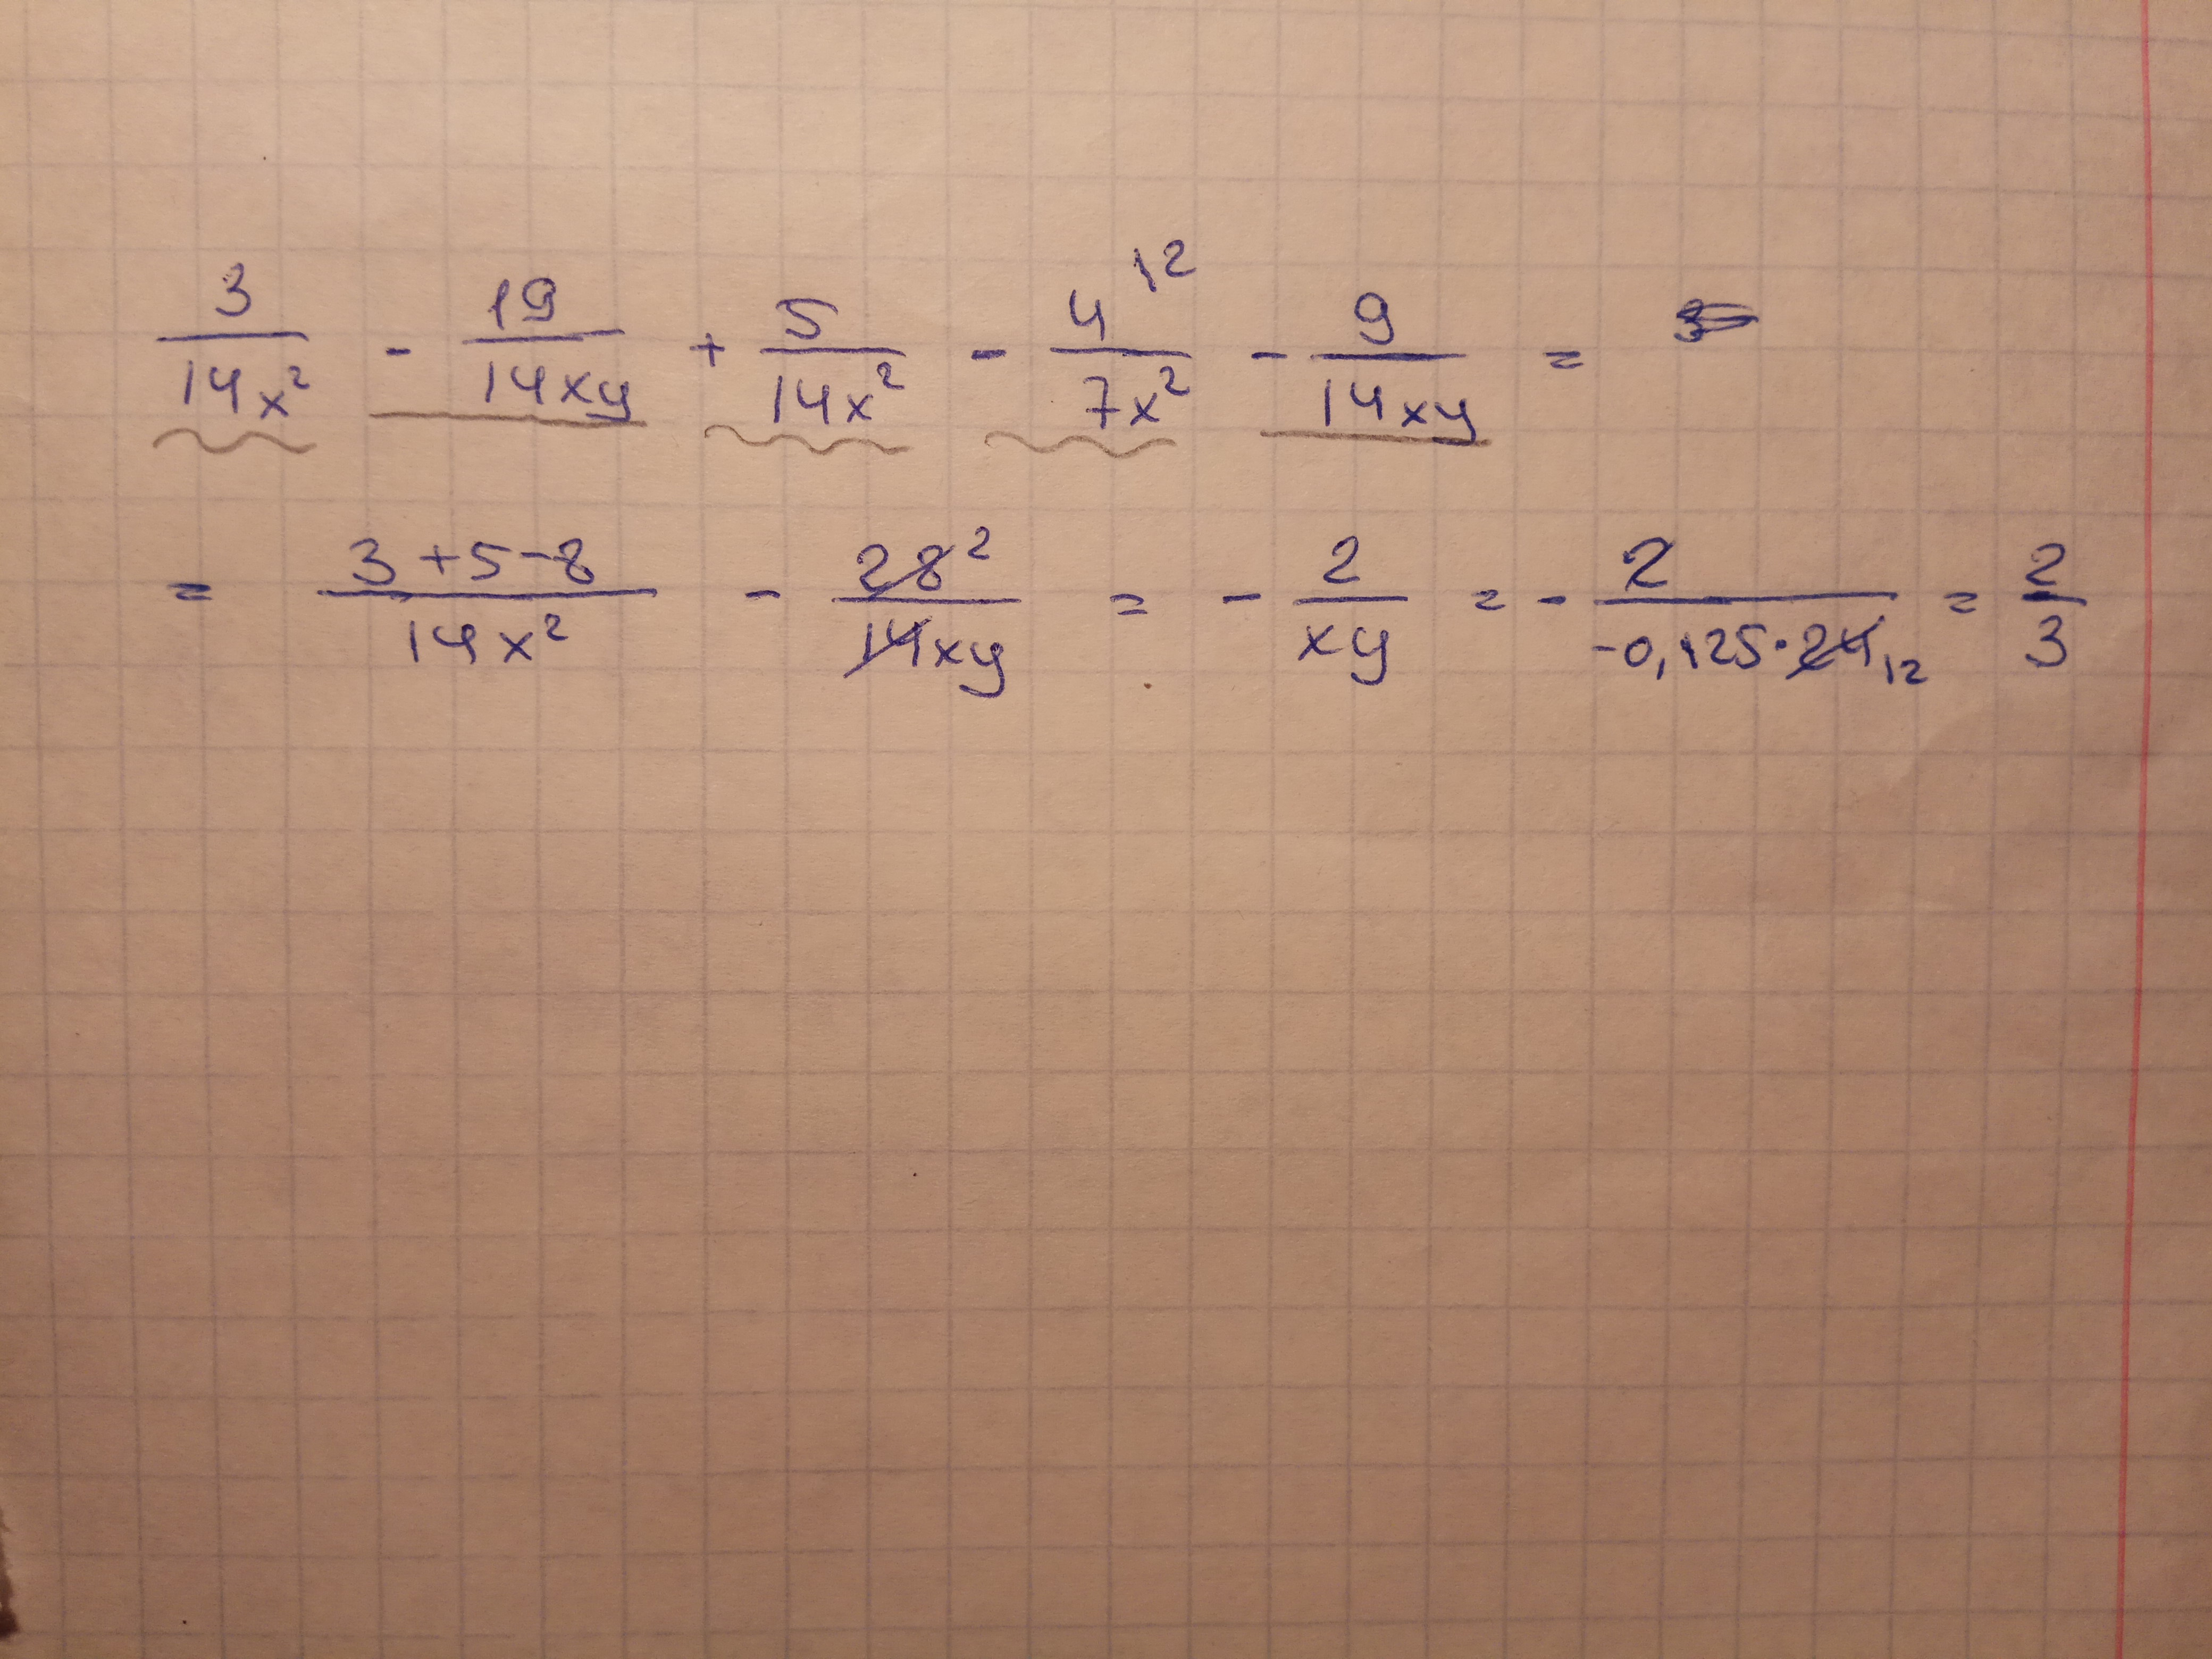 3/14x² - 19/14xy + 5/14x² - 4/7x² ¹² - 9/14xy =
= (3+5-8)/14x² - 28²/14xy = - 2/xy = - 2/(-0,125·24₁₂) = 2/3